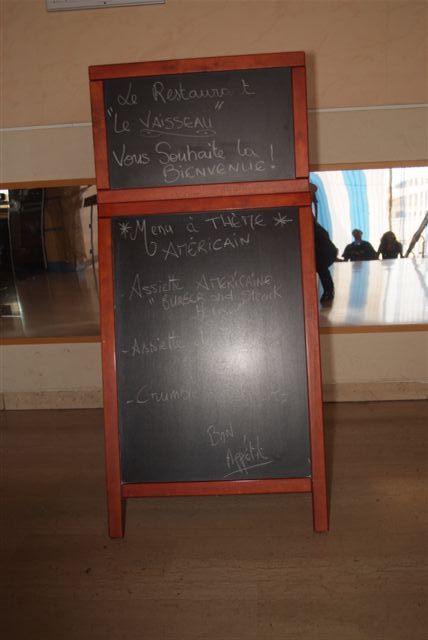 Le Restaurant
"Le VAISSEAU"
Vous Souhaite la
BIENVENUE!
*Menu à THÈME *
AMÉRICAIN
- Assiette AMERICAINE
"BURGER and Steack
- Assiette
- Crumble
Bon
Appétit